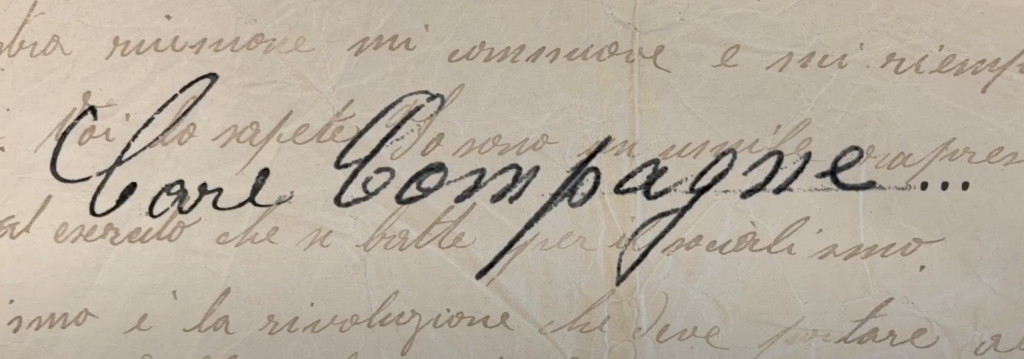 riunione mi commuove e mi riemp
Voi lo sapete. Io sono un umile rapres
Care Compagne...
esercito che si batte per il socialismo.
ismo è la rivoluzione che deve portare